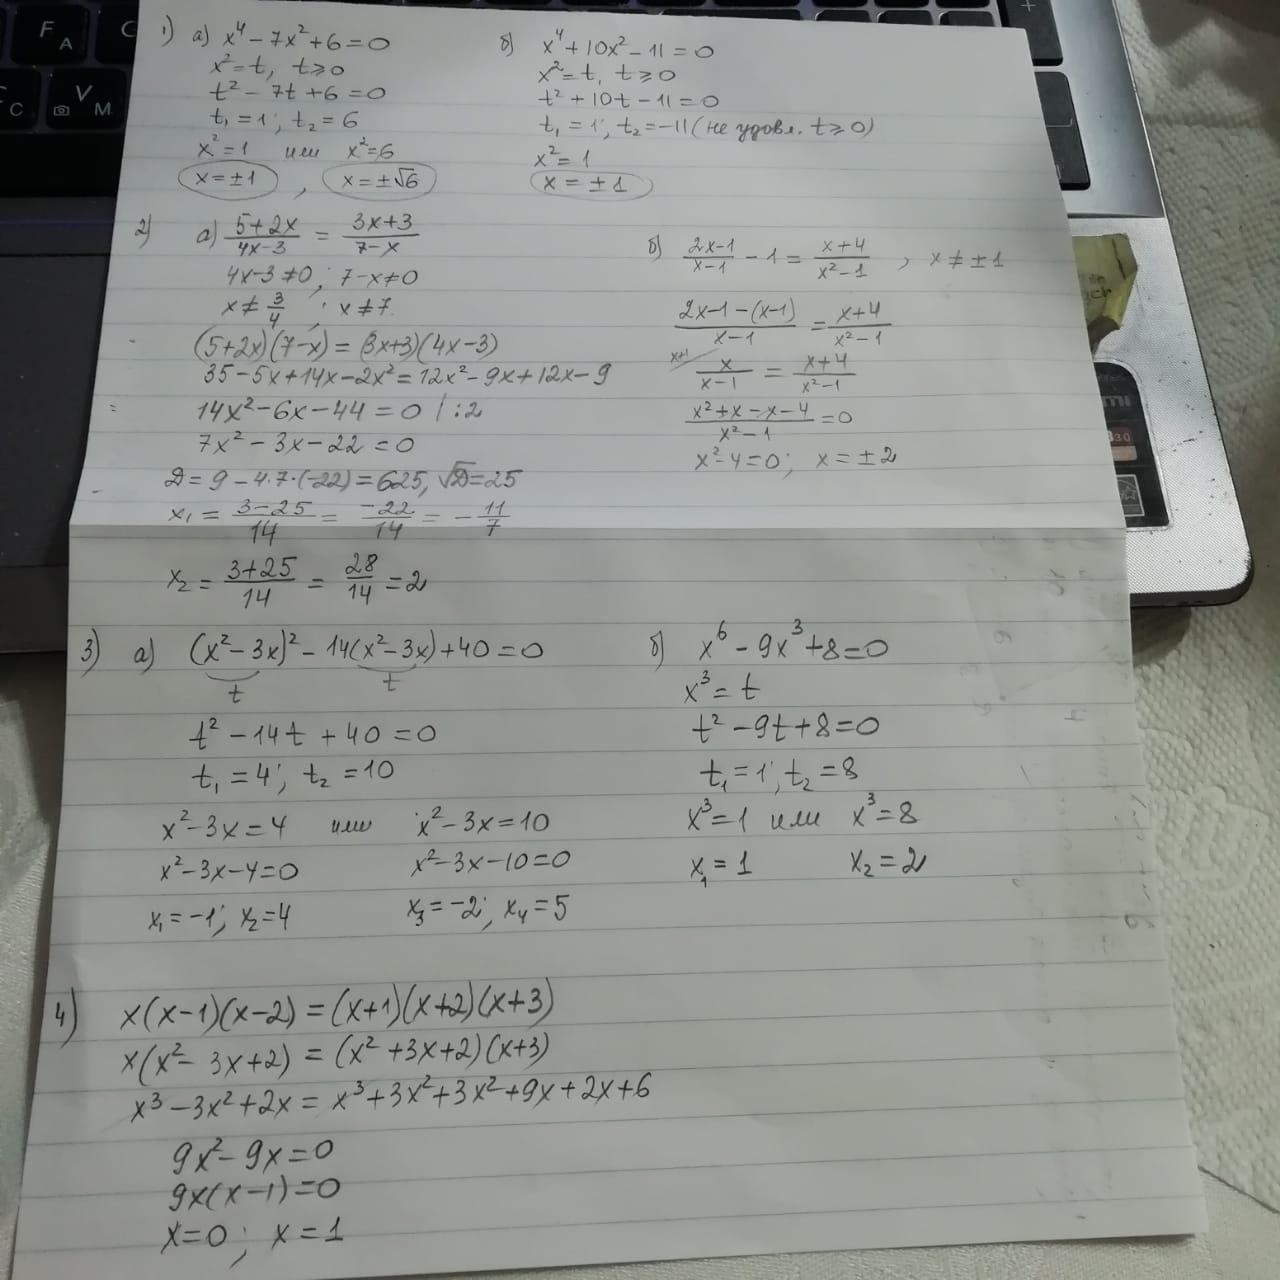 1) а) x⁴ - 7x² + 6 = 0
x² = t, t ⩾ 0
t² - 7t + 6 = 0
t₁ = 1; t₂ = 6
x² = 1 или x² = 6
x = ±1, x = ±√6
б) x⁴ + 10x² - 11 = 0
x² = t, t ⩾ 0
t² + 10t - 11 = 0
t₁ = 1; t₂ = -11 (не удовл. t ⩾ 0)
x² = 1
x = ±1
2) а) (5+2x)/(4x-3) = (3x+3)/(7-x)
4x-3 ≠ 0; 7-x ≠ 0
x ≠ 3/4; x ≠ 7
(5+2x)(7-x) = (3x+3)(4x-3)
35 - 5x + 14x - 2x² = 12x² - 9x + 12x - 9
14x² - 6x - 44 = 0 | :2
7x² - 3x - 22 = 0
D = 9 - 4·7·(-22) = 625, √D = 25
x₁ = (3-25)/14 = -22/14 = -11/7
x₂ = (3+25)/14 = 28/14 = 2
б) (2x-1)/(x-1) - 1 = (x+4)/(x²-1), x ≠ ±1
(2x-1-(x-1))/(x-1) = (x+4)/(x²-1)
x+1/ x/(x-1) = (x+4)/(x²-1)
(x²+x-x-4)/(x²-1) = 0
x²-4 = 0; x = ±2
3) а) (x²-3x)² - 14(x²-3x) + 40 = 0
t t
t² - 14t + 40 = 0
t₁ = 4; t₂ = 10
x²-3x = 4 или x²-3x = 10
x²-3x-4=0 x²-3x-10=0
x₁ = -1; x₂ = 4 x₃ = -2; x₄ = 5
б) x⁶ - 9x³ + 8 = 0
x³ = t
t² - 9t + 8 = 0
t₁ = 1; t₂ = 8
x³ = 1 или x³ = 8
x₁ = 1 x₂ = 2
4) x(x-1)(x-2) = (x+1)(x+2)(x+3)
x(x² - 3x + 2) = (x² + 3x + 2)(x+3)
x³ - 3x² + 2x = x³ + 3x² + 3x² + 9x + 2x + 6
9x² - 9x = 0
9x(x-1) = 0
x = 0; x = 1
F
A
C
V
M
C
+